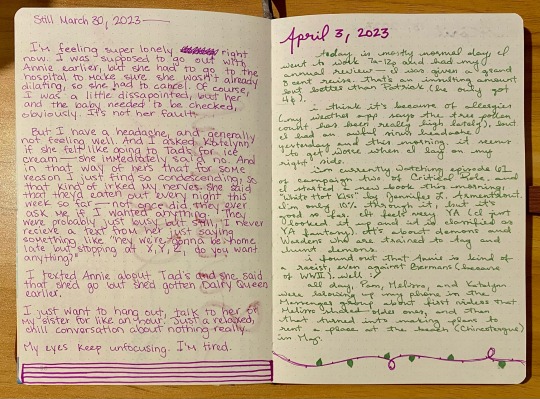 Still March 30, 2023
I'm feeling super lonely right
now. I was supposed to go out with
Annie earlier, but she had to go to the
hospital to make sure she wasn't already
dilating, so she had to cancel. Of course,
I was a little dissapointed, but her
and the baby needed to be checked,
obviously. It's not her fault.
But I have a headache, and generally
not feeling well. And I asked Katelynn
if she felt like going to Tad's for ice
cream — she immediately said no. And
in that way of hers that for some
reason I just find so condescending; so
that kind of irked my nerves. She said
that they'd eaten out every night this
week so far — not once did they ever
ask me if I wanted anything. They
were probably just busy but still, I never
recieve a text from her just saying
something like "hey we're gonna be home
late but stopping at X, Y, Z, do you want
anything?"
I texted Annie about Tad's and she said
that she'd go but she'd gotten Dairy Queen
earlier.
I just want to hang out, talk to her or
my sister for like an hour. Just a relaxed,
chill conversation about nothing really.
My eyes keep unfocusing. I'm tired.
April 3, 2023
today is mostly normal day, I
went to work 7a-12p and had my
annual review. I was given a grand
5 cent raise. That's an insulting amount
but better than Patrick (he only got
4¢).
i think it's because of allergies
(my weather app says the tree pollen
count has been really high lately), but
I had an awful sinus headache
yesterday and this morning. it seems
to get worse when I lay on my
right side.
i'm currently watching episode 61
of campaign two of Critical Role, and
I started a new book this morning:
"White Hot Kiss" by Jennifer L. Armentrout.
I'm only 10% through it, but it's
good so far. It feels very YA (I just
looked it up and it is classified as
YA fantasy). It's about demons and
Wardens who are trained to tag and
hunt demons.
i found out that Annie is kind of
a racist, even against Germans (because
of WWII). well :/
all day, Pam, Melissa, and Katelyn
were blowing up my phone in the
Messenger about
Melissa older ones, and then
that turned into making plans to
rent a place at the beach (Chincoteague)
in May.